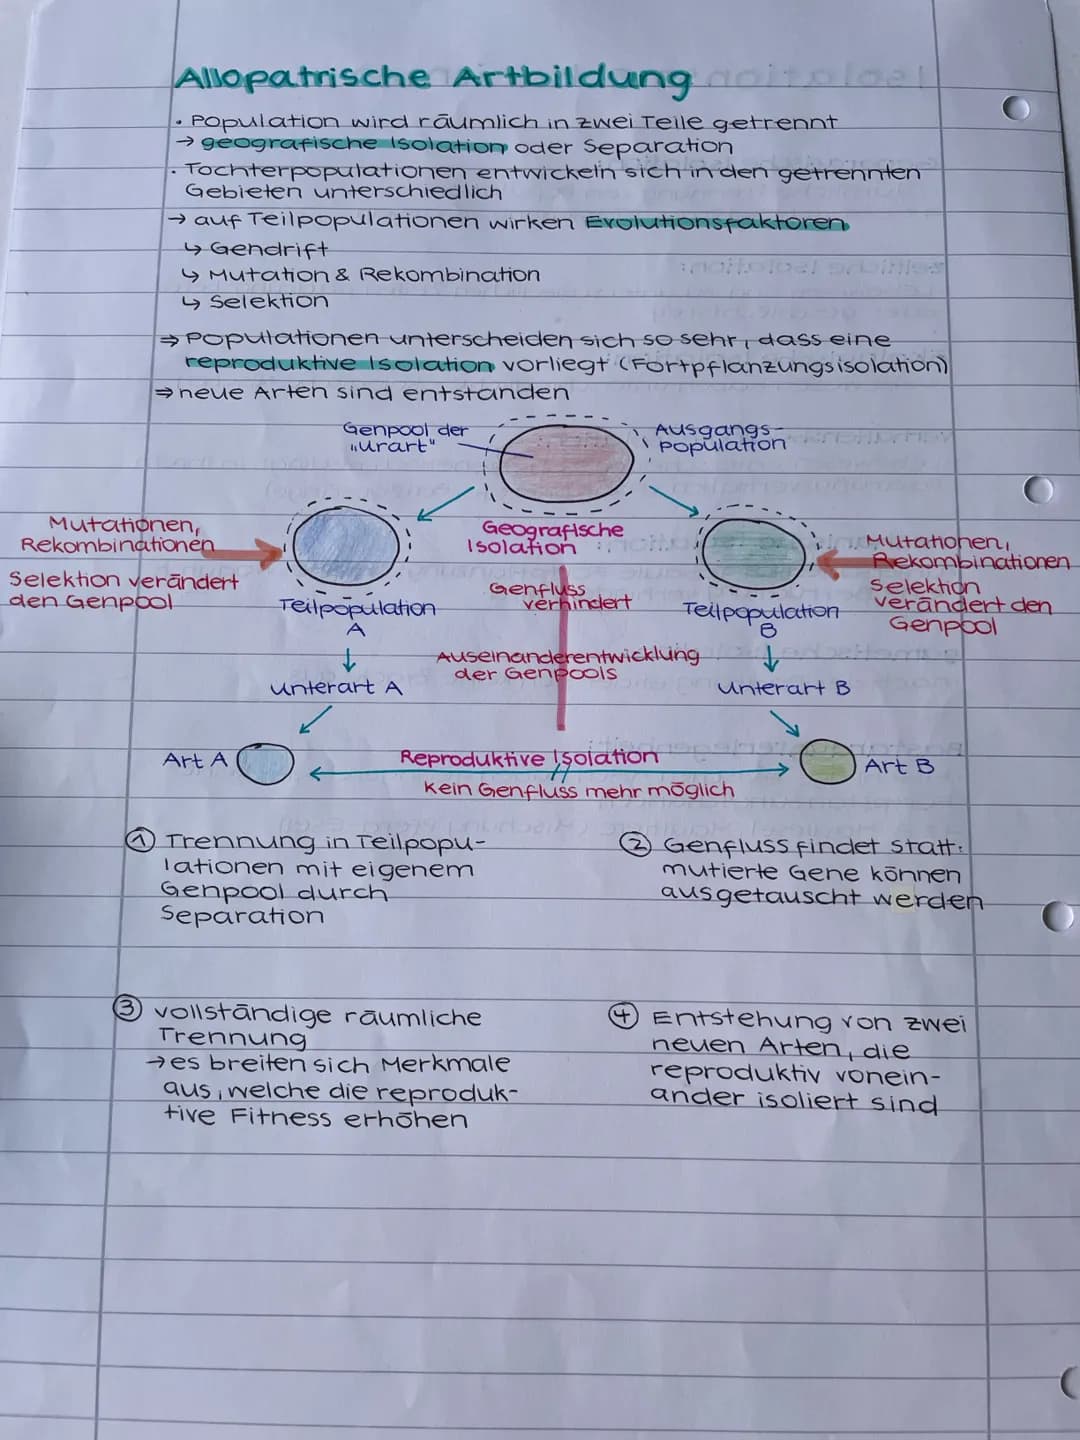 Allopatrische Artbildung
• Population wird räumlich in zwei Teile getrennt
→ geografische Isolation oder Separation
• Tochterpopulationen entwickeln sich in den getrennten
Gebieten unterschiedlich
→ auf Teilpopulationen wirken Evolutionsfaktoren
↳ Gendrift
↳ Mutation & Rekombination
↳ Selektion
⇒ Populationen unterscheiden sich so sehr, dass eine
reproduktive Isolation vorliegt (Fortpflanzungsisolation)
⇒ neue Arten sind entstanden
Genpool der
„Urart"
Ausgangs-
population
Mutationen,
Rekombinationen
Selektion verändert
den Genpool
Geografische
Isolation
Genfluss
verhindert
Mutationen,
Rekombinationen
Selektion
verändert den
Genpool
Teilpopulation
A
Teilpopulation
B
Auseinanderentwicklung
der Genpools
Unterart A
Unterart B
Art A
Reproduktive Isolation
Kein Genfluss mehr möglich
Art B
① Trennung in Teilpopu-
lationen mit eigenem
Genpool durch
Separation
② Genfluss findet statt:
mutierte Gene können
ausgetauscht werden
③ vollständige räumliche
Trennung
→ es breiten sich Merkmale
aus, welche die reproduk-
tive Fitness erhöhen
④ Entstehung von zwei
neuen Arten, die
reproduktiv vonein-
ander isoliert sind